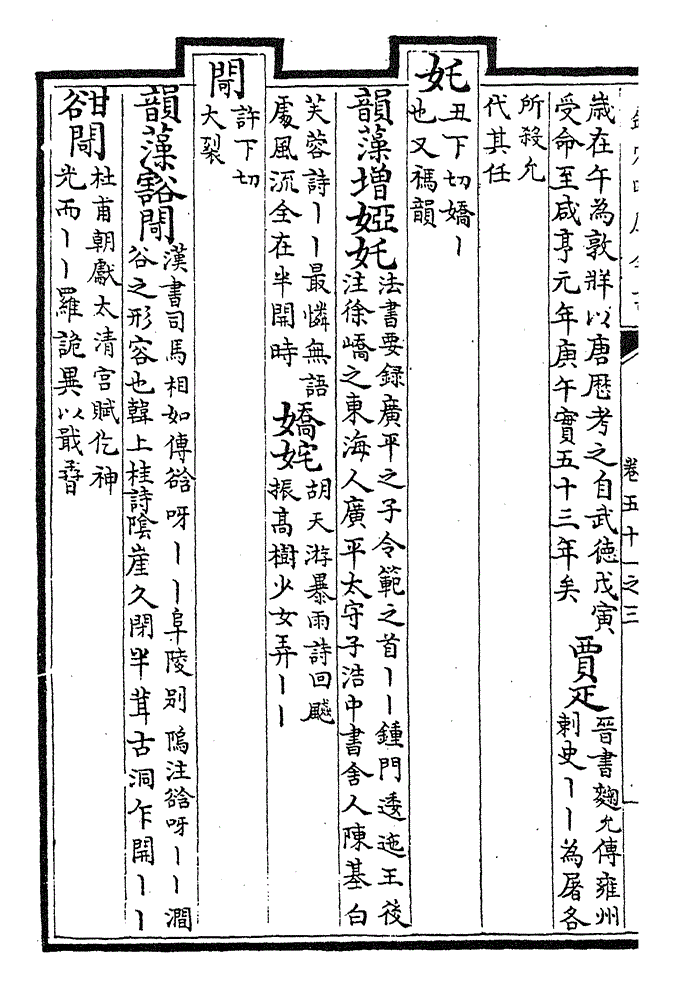 卷五十一之三
歲在午為敦牂以唐歴考之自武徳戊寅
受命至咸亨元年庚午實五十三年矣
賈疋
晉書麴允傳雍州
刺史丨丨為屠各
所殺允
代其任
奼
丑下切嬌丨
也又禡韻
韻藻増婭奼
法書要録廣平之子令範之首丨丨鍾門逶迤王後
注徐嶠之東海人廣平太守子浩中書舍人陳基白
芙蓉詩丨丨最憐無語
處風流全在半開時
嬌姹
胡天游暴雨詩回飈
振髙樹少女弄丨丨
閜
許下切
大裂
韻藻豁閜
漢書司馬相如傳谽呀丨丨阜陵别隝注谽呀丨丨澗
谷之形容也韓上桂詩陰崖久閉半茸古洞乍開丨丨
閜
杜甫朝獻太清宫賦仡神
光而丨丨羅詭異以戢孴